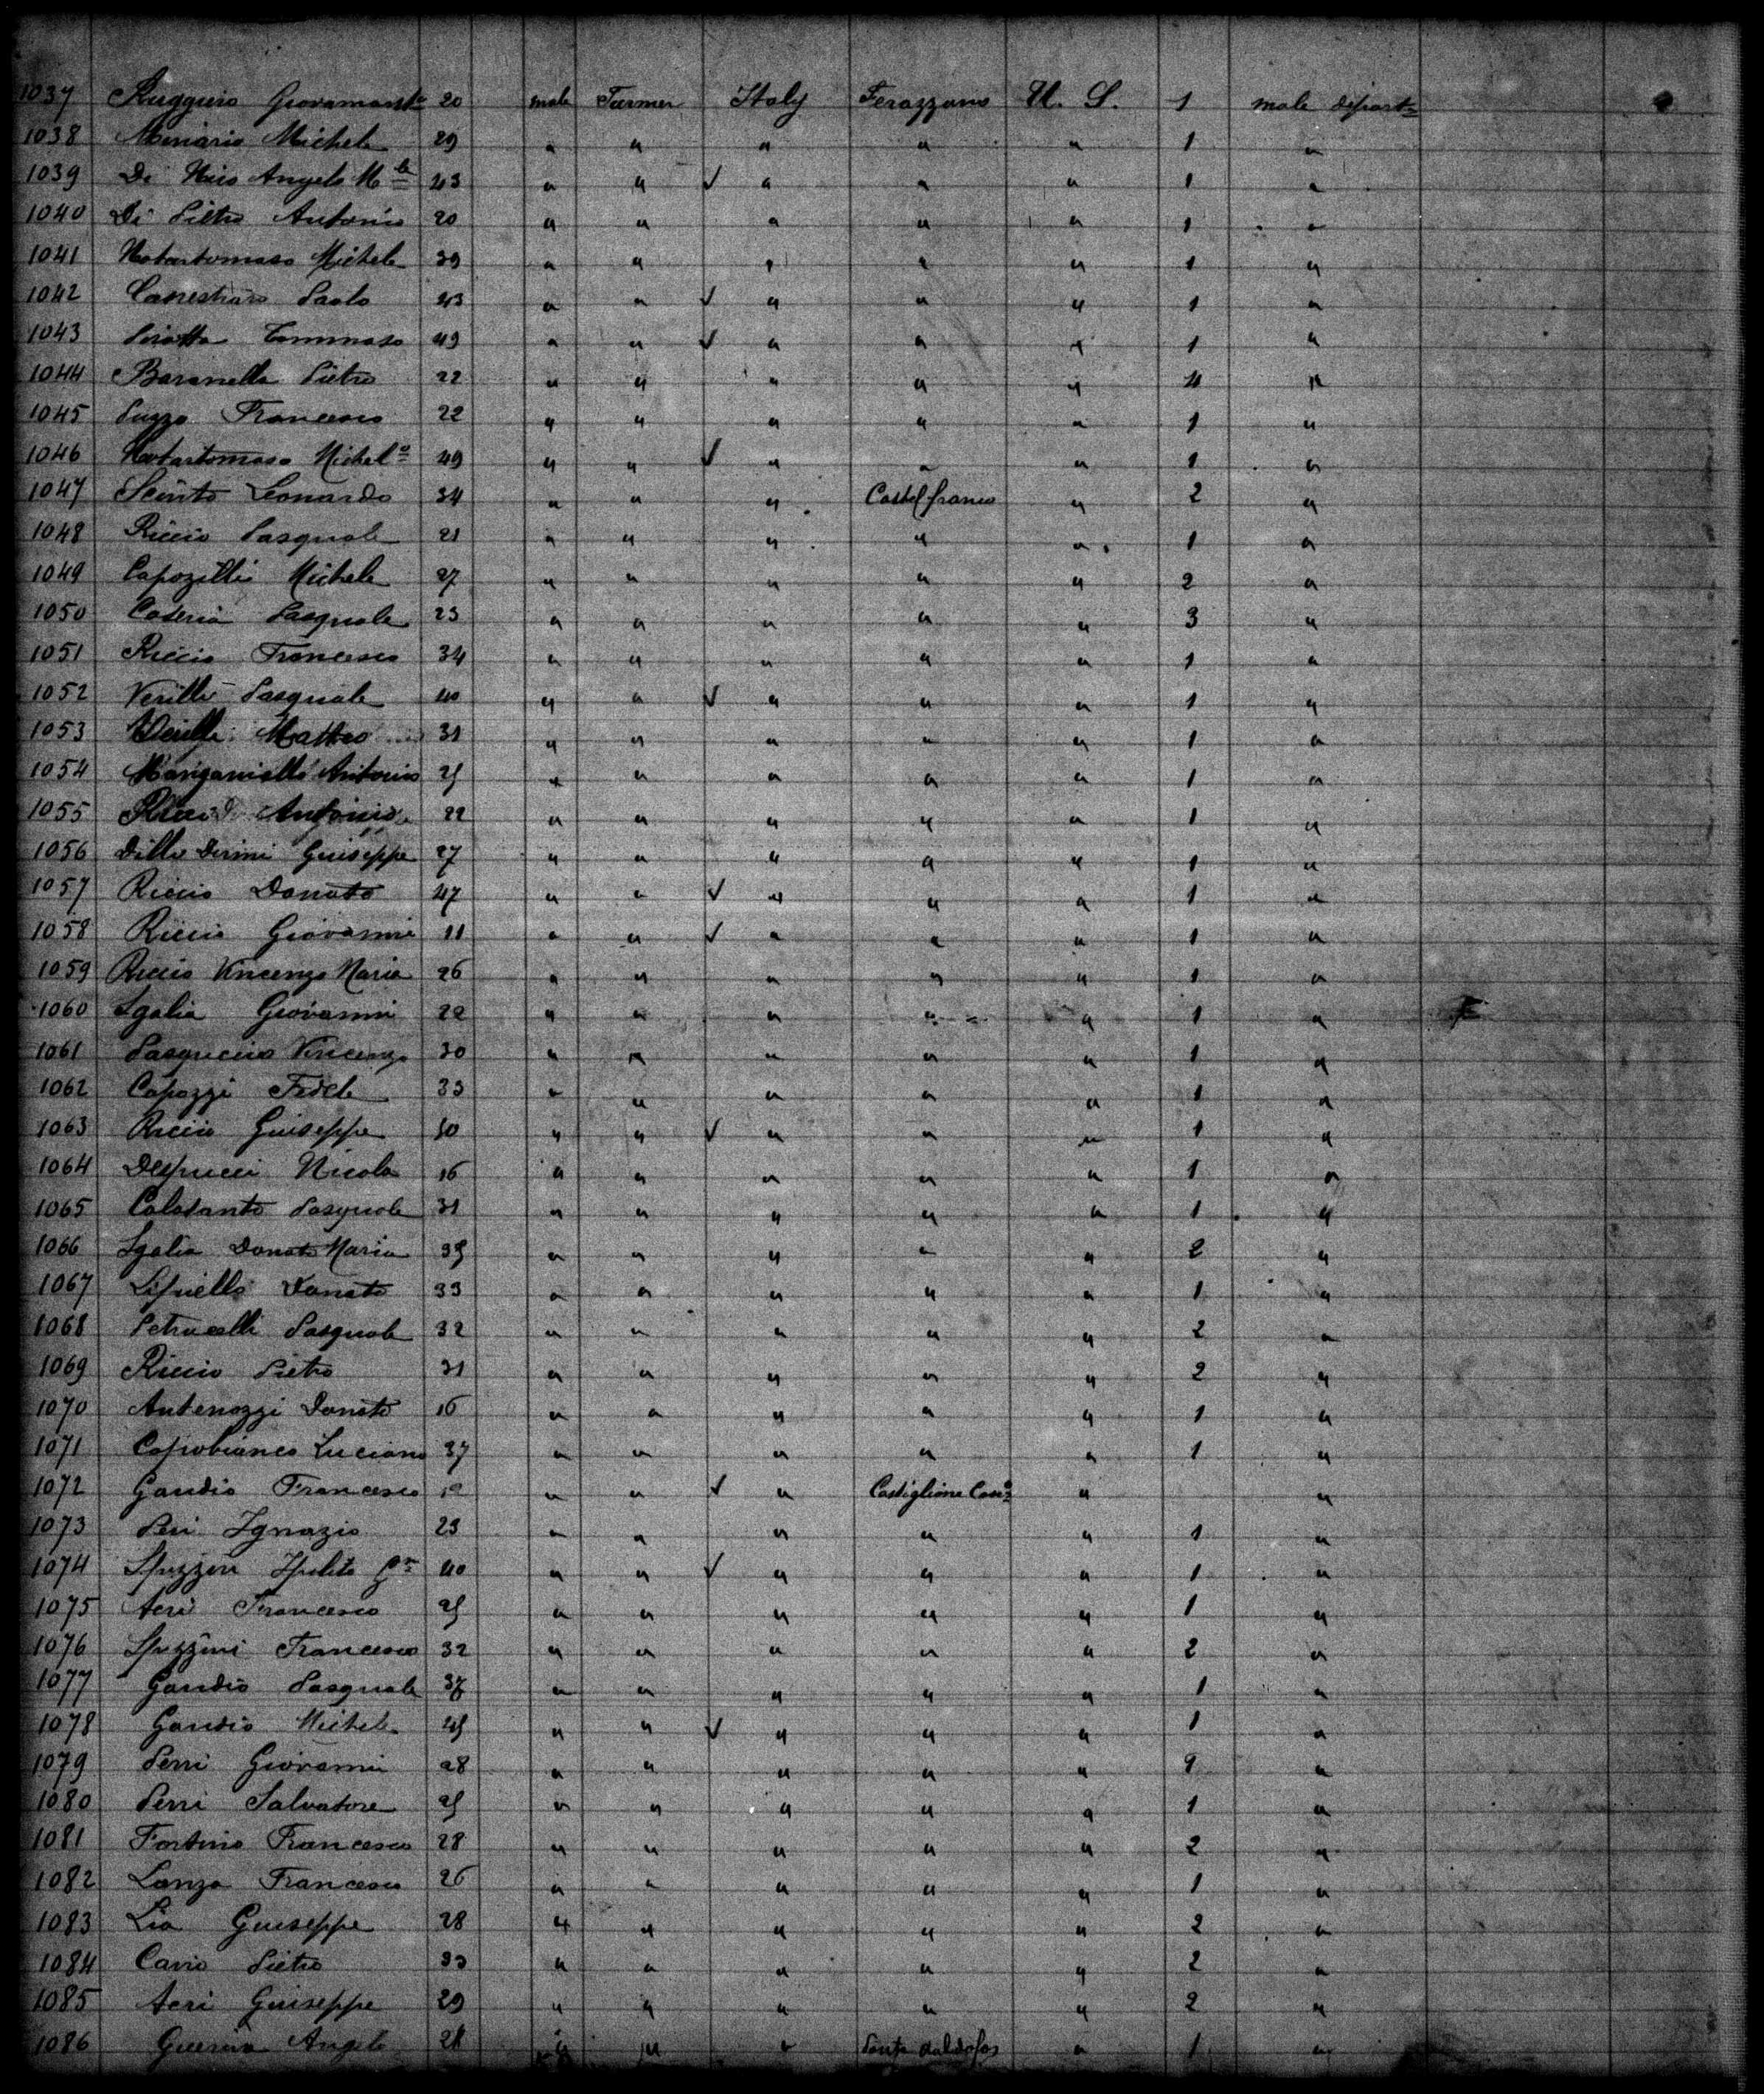 1037 Ruggiero Giovannant 20 male Farmer Italy Ferazzano U. S. 1 male depart
1038 Miniario Michele 29 " " " " " 1 "
1039 Di Nico Angelo Mle 43 " " ✓ " " " 1 "
1040 Di Pietro Antonio 20 " " " " " 1 "
1041 Notartomaso Michele 39 " " " " " 1 "
1042 Canestraro Paolo 43 " " ✓ " " " 1 "
1043 Tommaso 49 " " ✓ " " " 1 "
1044 Baranella Pietro 22 " " " " " 4 "
1045 Puzzo Francesco 22 " " " " " 1 "
1046 Notartomaso Michele 49 " " ✓ " " " 1 "
1047 Scinto Leonardo 34 " " " Castelfranco " 2 "
1048 Riccio Pasquale 21 " " " " " 1 "
1049 Capozilli Michele 27 " " " " " 2 "
1050 Pasquale 23 " " " " " 3 "
1051 Riccio Francesco 34 " " " " " 1 "
1052 Verilli Pasquale 40 " " ✓ " " " 1 "
1053 Verilli Matteo 31 " " " " " 1 "
1054 Manganiello Antonio 25 " " " " " 1 "
1055 Antonio 22 " " " " " 1 "
1056 Giuseppe 27 " " " " " 1 "
1057 Riccio Donato 47 " " ✓ " " " 1 "
1058 Riccio Giovanni 11 " " ✓ " " " 1 "
1059 Riccio Vincenzo Maria 26 " " " " " 1 "
1060 Sgalia Giovanni 22 " " " " " 1 "
1061 Pasquccio Vincenzo 30 " " " " " 1 "
1062 Capozzi Fedele 33 " " " " " 1 "
1063 Riccio Giuseppe 50 " " ✓ " " " 1 "
1064 Nicola 16 " " " " " 1 "
1065 Colasanto Pasquale 31 " " " " " 1 "
1066 Sgalia Donato Maria 35 " " " " " 2 "
1067 Donato 33 " " " " " 1 "
1068 Petrucelli Pasquale 32 " " " " " 2 "
1069 Riccio Pietro 31 " " " " " 2 "
1070 Antenozzi Donato 16 " " " " " 1 "
1071 Capobianco Luciano 37 " " " " " 1 "
1072 Gaudio Francesco " " ✓ " Castiglione Cosno " "
1073 Peri Ignazio 23 " " " " " 1 "
1074 Spizzirri 40 " " ✓ " " " 1 "
1075 Acri Francesco 25 " " " " " 1 "
1076 Spizzirri Francesco 32 " " " " " 2 "
1077 Gaudio Pasquale 37 " " " " " 1 "
1078 Gaudio Michele 45 " " ✓ " " " 1 "
1079 Perri Giovanni 28 " " " " " "
1080 Perri Salvatore 25 " " " " " 1 "
1081 Fortino Francesco 28 " " " " " 2 "
1082 Lanzo Francesco 26 " " " " " 1 "
1083 Lio Giuseppe 28 " " " " " 2 "
1084 Cario Pietro 33 " " " " " 2 "
1085 Acri Giuseppe 29 " " " " " 2 "
1086 Angelo 28 " " " " 1 "